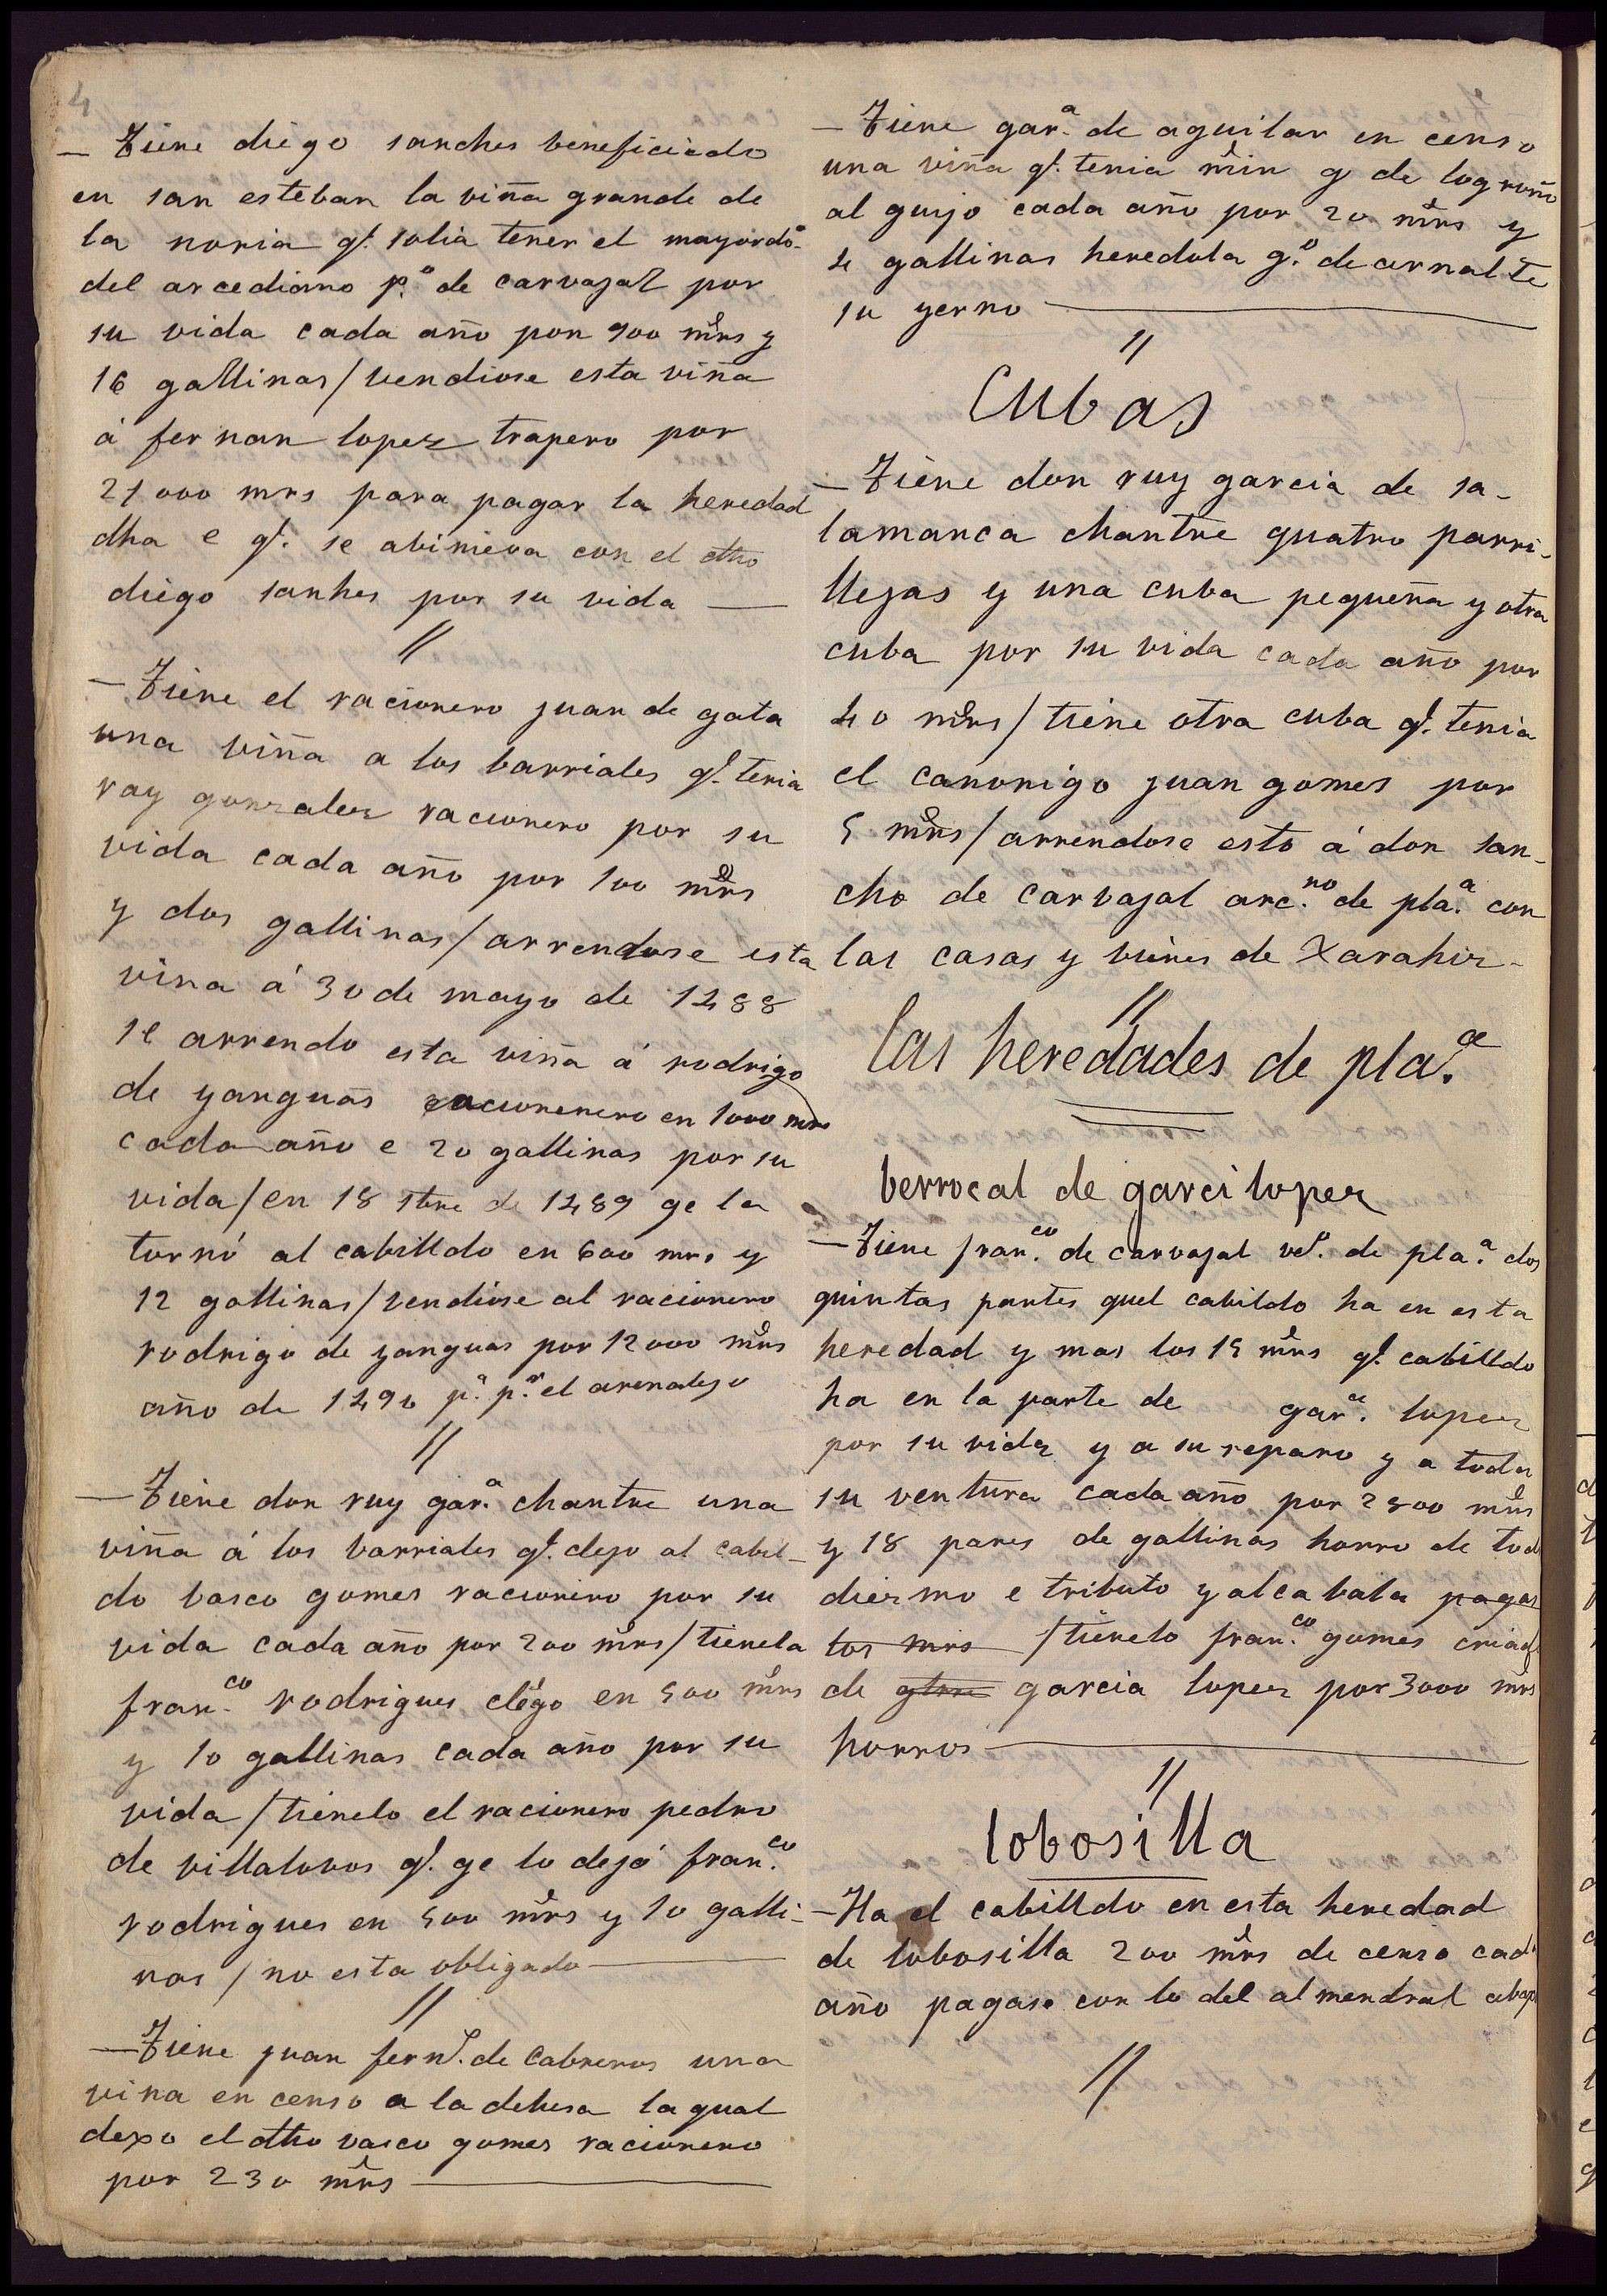 4
— Tiene diego sanches beneficiado
en san esteban la viña grande de
la noria q.ͤ solia tener el mayordo-
del arcediano p.º de carvajal por
su vida cada año por 900 mrs y
16 gallinas / vendiose esta viña
á fernan lopez trapero por
21000 mrs para pagar la heredad
dha e q.ͤ se con el dho
diego sanhes por su vida —
//
— Tiene el racionero juan de gata
una viña a los barriales q.ͤ tenia
ruy gonzalez racionero por su
vida cada año por 100 mrs
y dos gallinas / arrendose esta
viña á 30 de mayo de 1488
se arrendo esta viña á rodrigo
de yanguas racionenero en 1000 mrs
cada año e 20 gallinas por su
vida / en 18 stbre de 1489 ge la
tornó al cabilldo en 600 mrs y
12 gallinas / vendiose al racionero
rodrigo de yanguas por 12000 mrs
año de 1490 p.ª p.ʳ el arenalejo
//
— Tiene don ruy gar.ª chantre una
viña á los barriales q.ͤ dejo al cabil-
do vasco gomes racionero por su
vida cada año por 200 mrs / tienela
fran.ᶜᵒ rodrigues clégo en 500 mrs
y 10 gallinas cada año por su
vida / tienelo el racionero pedro
de villalovos q.ͤ ge lo dejó fran.ᶜᵒ
rodrigues en 500 mrs y 10 galli-
nas / no esta obligado —
//
— Tiene juan fern.ͩ de Cabreros una
viña en censo a la dehesa la qual
dexo el dho vasco gomes racionero
por 230 mrs —
— Tiene gar.ª de aguilar en censo
una viña q.ͤ tenia min g de logroño
al guijo cada año por 20 mrs y
4 gallinas heredola g.º de arnalte
su yerno —
//
Cubas
— Tiene don ruy garcia de sa-
lamanca chantre quatro parri-
llejas y una cuba pequeña y otra
cuba por su vida cada año por
40 mrs / tiene otra cuba q.ͤ tenia
el canonigo juan gomes por
5 mrs / arrendose esto á don san-
cho de carvajal arc.ⁿᵒ de pla.ª con
las casas y bienes de Xarahiz -
//
las heredades de pla.ª
berrocal de garci lopez
— Tiene fran.ᶜᵒ de carvajal vº. de pla.ª dos
quintas partes quel cabildo ha en esta
heredad y mas los 15 mrs q.ͤ cabilldo
ha en la parte de gar.ª lopez
por su vida y a su reparo y a toda
su ventura cada año por 2500 mrs
y 18 pares de gallinas horro de tod
diezmo e tributo y alcabala pagas
los mrs / tienelo fran.ᶜᵒ gomes criad
de garcia lopez por 3000 mrs
horros —
//
lobosilla
— Ha el cabilldo en esta heredad
de lobosilla 200 mrs de censo cad
año pagase con lo del almendral abap
//